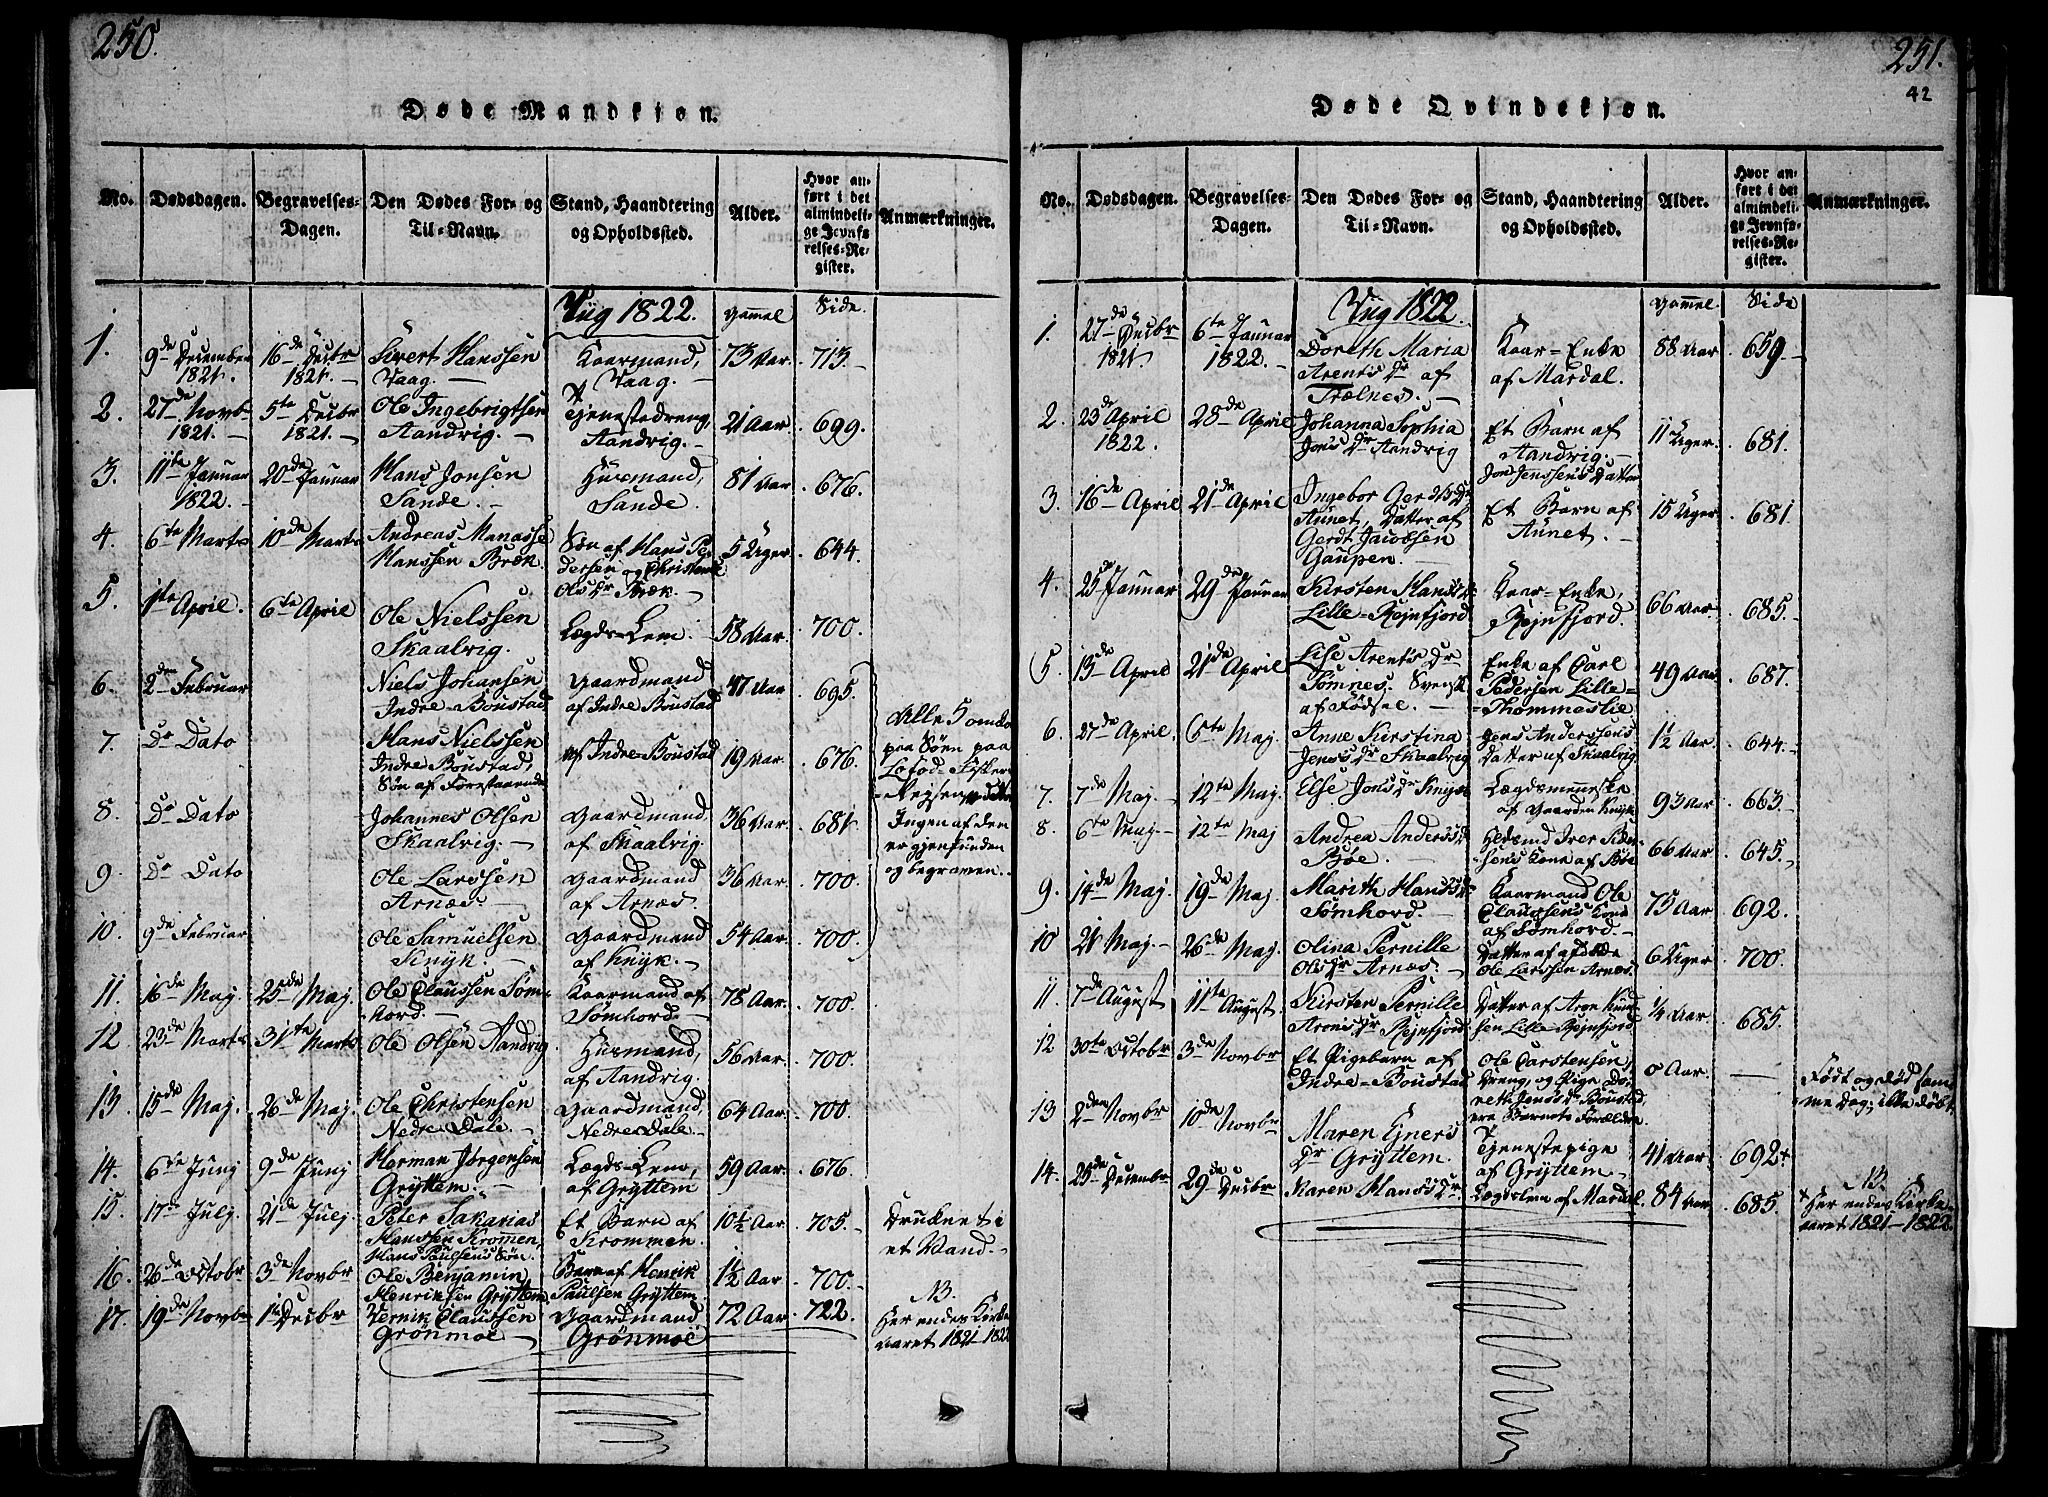 250.
Døde Mandkjøn.
No.
Dødsdagen.
Begravelses-
Dagen.
Den Dødes For- og
Til-Navn.
Stand, Haandtering
og Opholdssted.
Alder.
Hvor an-
ført i det
almindeli-
ge Jevnfø
relses-Re-
gister.
Anmærkninger.
1822.
gammel
Side.
1. 9de December 1821. 16de Decbr 1821. Sivert Hanssen Vaag. Kaarmand, Vaag. 73 Aar. 713.
2. 27de Novbr 1821. 5te Decbr 1821. Ole Ingebrigtsen Aandvig. Tjenestedreng, Aandvig. 21 Aar. 699.
3. 11te Januar 1822. 20de Januar Hans Jonsen Sande. Huusmand, Sande. 81 Aar. 676.
4. 6te Marts 10de Marts Andreas Manasse Hanssen Bræk. Søn af Hans Pedersen og Christense Ols Dr Bræk. 5 Uger. 644.
5. 1te April. 6te April Ole Nielssen Skaalvig. Lægds-Lem. 58 Aar. 700.
6. 2den Februar Niels Johansen Indre-Boustad Gaardmand af Indre Boustad 47 Aar 695.
7. Do Dato Hans Nielssen Indre Boustad, Søn af Forestaaende af Indre-Boustad 19 Aar. 676.
8. Do Dato Johannes Olsen Skaalvig. Gaardmand af Skaalvig. 36 Aar. 681.
9. Do Dato Ole Larssen Arnæs. Gaardmand af Arnæs. 36 Aar. 700.
10. 9de Februar Ole Samuelsen Knyk. Gaardmand af Knyk. 54 Aar. 700.
Alle 5 omkom
paa Søen paa
Lofod-Fisker-
Ingen af dem
er gjenfunden
og begraven.
11. 16de Maj. Maj. Ole Claussen Sømhord. Kaarmand af Sømhord. 78 Aar. 700.
12. 23de Marts 31te Marts Ole Olsen Aandvig Huusmand, af Aandvig. 56 Aar. 700.
13. 15de Maj. 26de Maj. Ole Christensen Nedre Dale. Gaardmand, Nedre Dale. 64 Aar. 700.
14. 6te Junj 9de Junj Herman Jørgensen Gryttem. Lægds-Lem, af Gryttem 59 Aar. 676.
15. 17de Julj. 21de Julj. Peter Sakarias Hanssen Kromen, Hans Paulsens Søn. Et Barn af Krommen. 10½ Aar. 705. Druknet i et Vand.
16. 26de Octobr 3de Novbr Ole Benjamin Henriksen Gryttem Barn af Henrik Paulsen Gryttem. 1½ Aar 700.
17. 19de Novbr 1te Decbr Claussen Grønmoe Gaardmand Grønmoe 72 Aar 722.
NB.
Her endes Kirke-
aaret 1821-1822
251.
42
Døde Qvindekjøn.
No.
Dødsdagen.
Begravelses-
Dagen.
Den Dødes For- og
Til-Navn.
Stand, Haandtering
og Opholdssted.
Alder.
Hvor an-
ført i det
almindeli-
ge Jevnfø-
relses-Re-
gister.
Anmærkninger.
1822.
gammel.
Side
1. 27de Decbr 1821. 6te Januar 1822. Doreth Maria Arents Dr af Trælnes. Kaar-Enke af Mardal. 88 Aar 659.
2. 23de April 1822. 28de April Johanna Sophia Jons Dr Aandvig Et Barn af Aandvig. Jon Jenssens Datter 11 Uger. 681.
3. 16de April 21de April Ingebor Gerdts Dr Aunet, Datter af Gerdt Jacobsen Gaupen. Et Barn af Aunet. 15 Uger 681.
4. 25de Januar 29de Januar Kirsten Hans Dr Lille-Rejnfjord Kaar-Enke, Rejnfjord. 66 Aar. 685.
5. April 21de April Lise Arents Dr Sømnes. Svensk af Fødsel. Enke af Carl Pedersen Lille-Thommeslie 49 Aar 687.
6. 27de April. 5te Maj. Anne Kirstina Jens Dr Skaalvig Jens Anderssens Datter af Skaalvig 1½ Aar. 644.
7. 7de Maj. 12te Maj. Else Jons Dr Knyk Lægdsmenneske af Gaarden Knyk 93 Aar. 663.
8. 6te Maj. 12te Maj Andrea Anders Dr Bøe. Kone af Bøe 66 Aar. 645.
9. 14de Maj. 19de Maj. Marith Hans Dr Sømhord. Kaarmand Ole Claussens Kone af Sømhord. 75 Aar 692.
10 Maj. 26de Maj. Olina Pernille Ols Dr Arnæs. Datter af afdøde Ole Larssen Arnæs. 6 Uger 700.
11. 7de August 11te August. Kirsten Pernille Arons Dr Rejnfjord Datter af Aron Knudsen Lille-Rejnfjord ¼ Aar. 685.
12 30te Octobr 3de Novbr Et Pigebarn af Indre-Boustad Ole Carstensen, Dreng, og Pige Doreth Jens Dr Boustad ere Barnets Forældre. 0 Aar. Født og død samme Dag; ikke døbt.
13 2den Novbr 10de Novbr Maren Ejners Dr Gryttem. Tjenestepige af Gryttem 41 Aar. 692+
14. 25de Decembr 29de Decbr Karen Hans Dr. Lægdslem af Mardal. 84 Aar 685.
NB.
+ Her endes Kirke-
aaret 1821-1822.